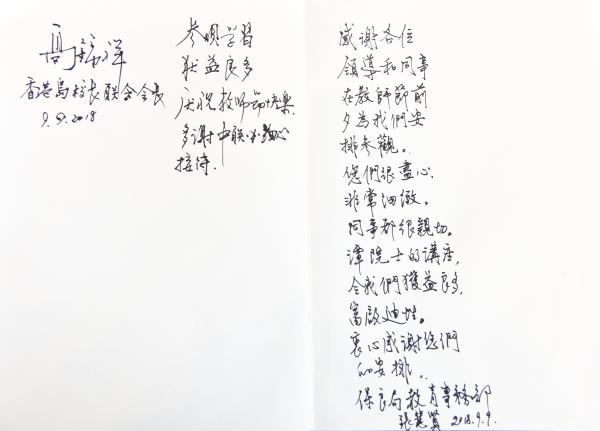 參觀學習
获益良多
庆祝教师節快樂
多謝中联办熱心
接待.
香港島校长联会会长
9.9.2018
感谢各位
領導和同事
在教師節前
夕為我們安
排参觀。
您們很盡心.
非常细緻。
同事都很親切。
潭院士的講座,
令我們獲益良多,
富啟迪性。
衷心感谢您們
的安排。
保良局教育事務部
張慧賢 2018.9.9.